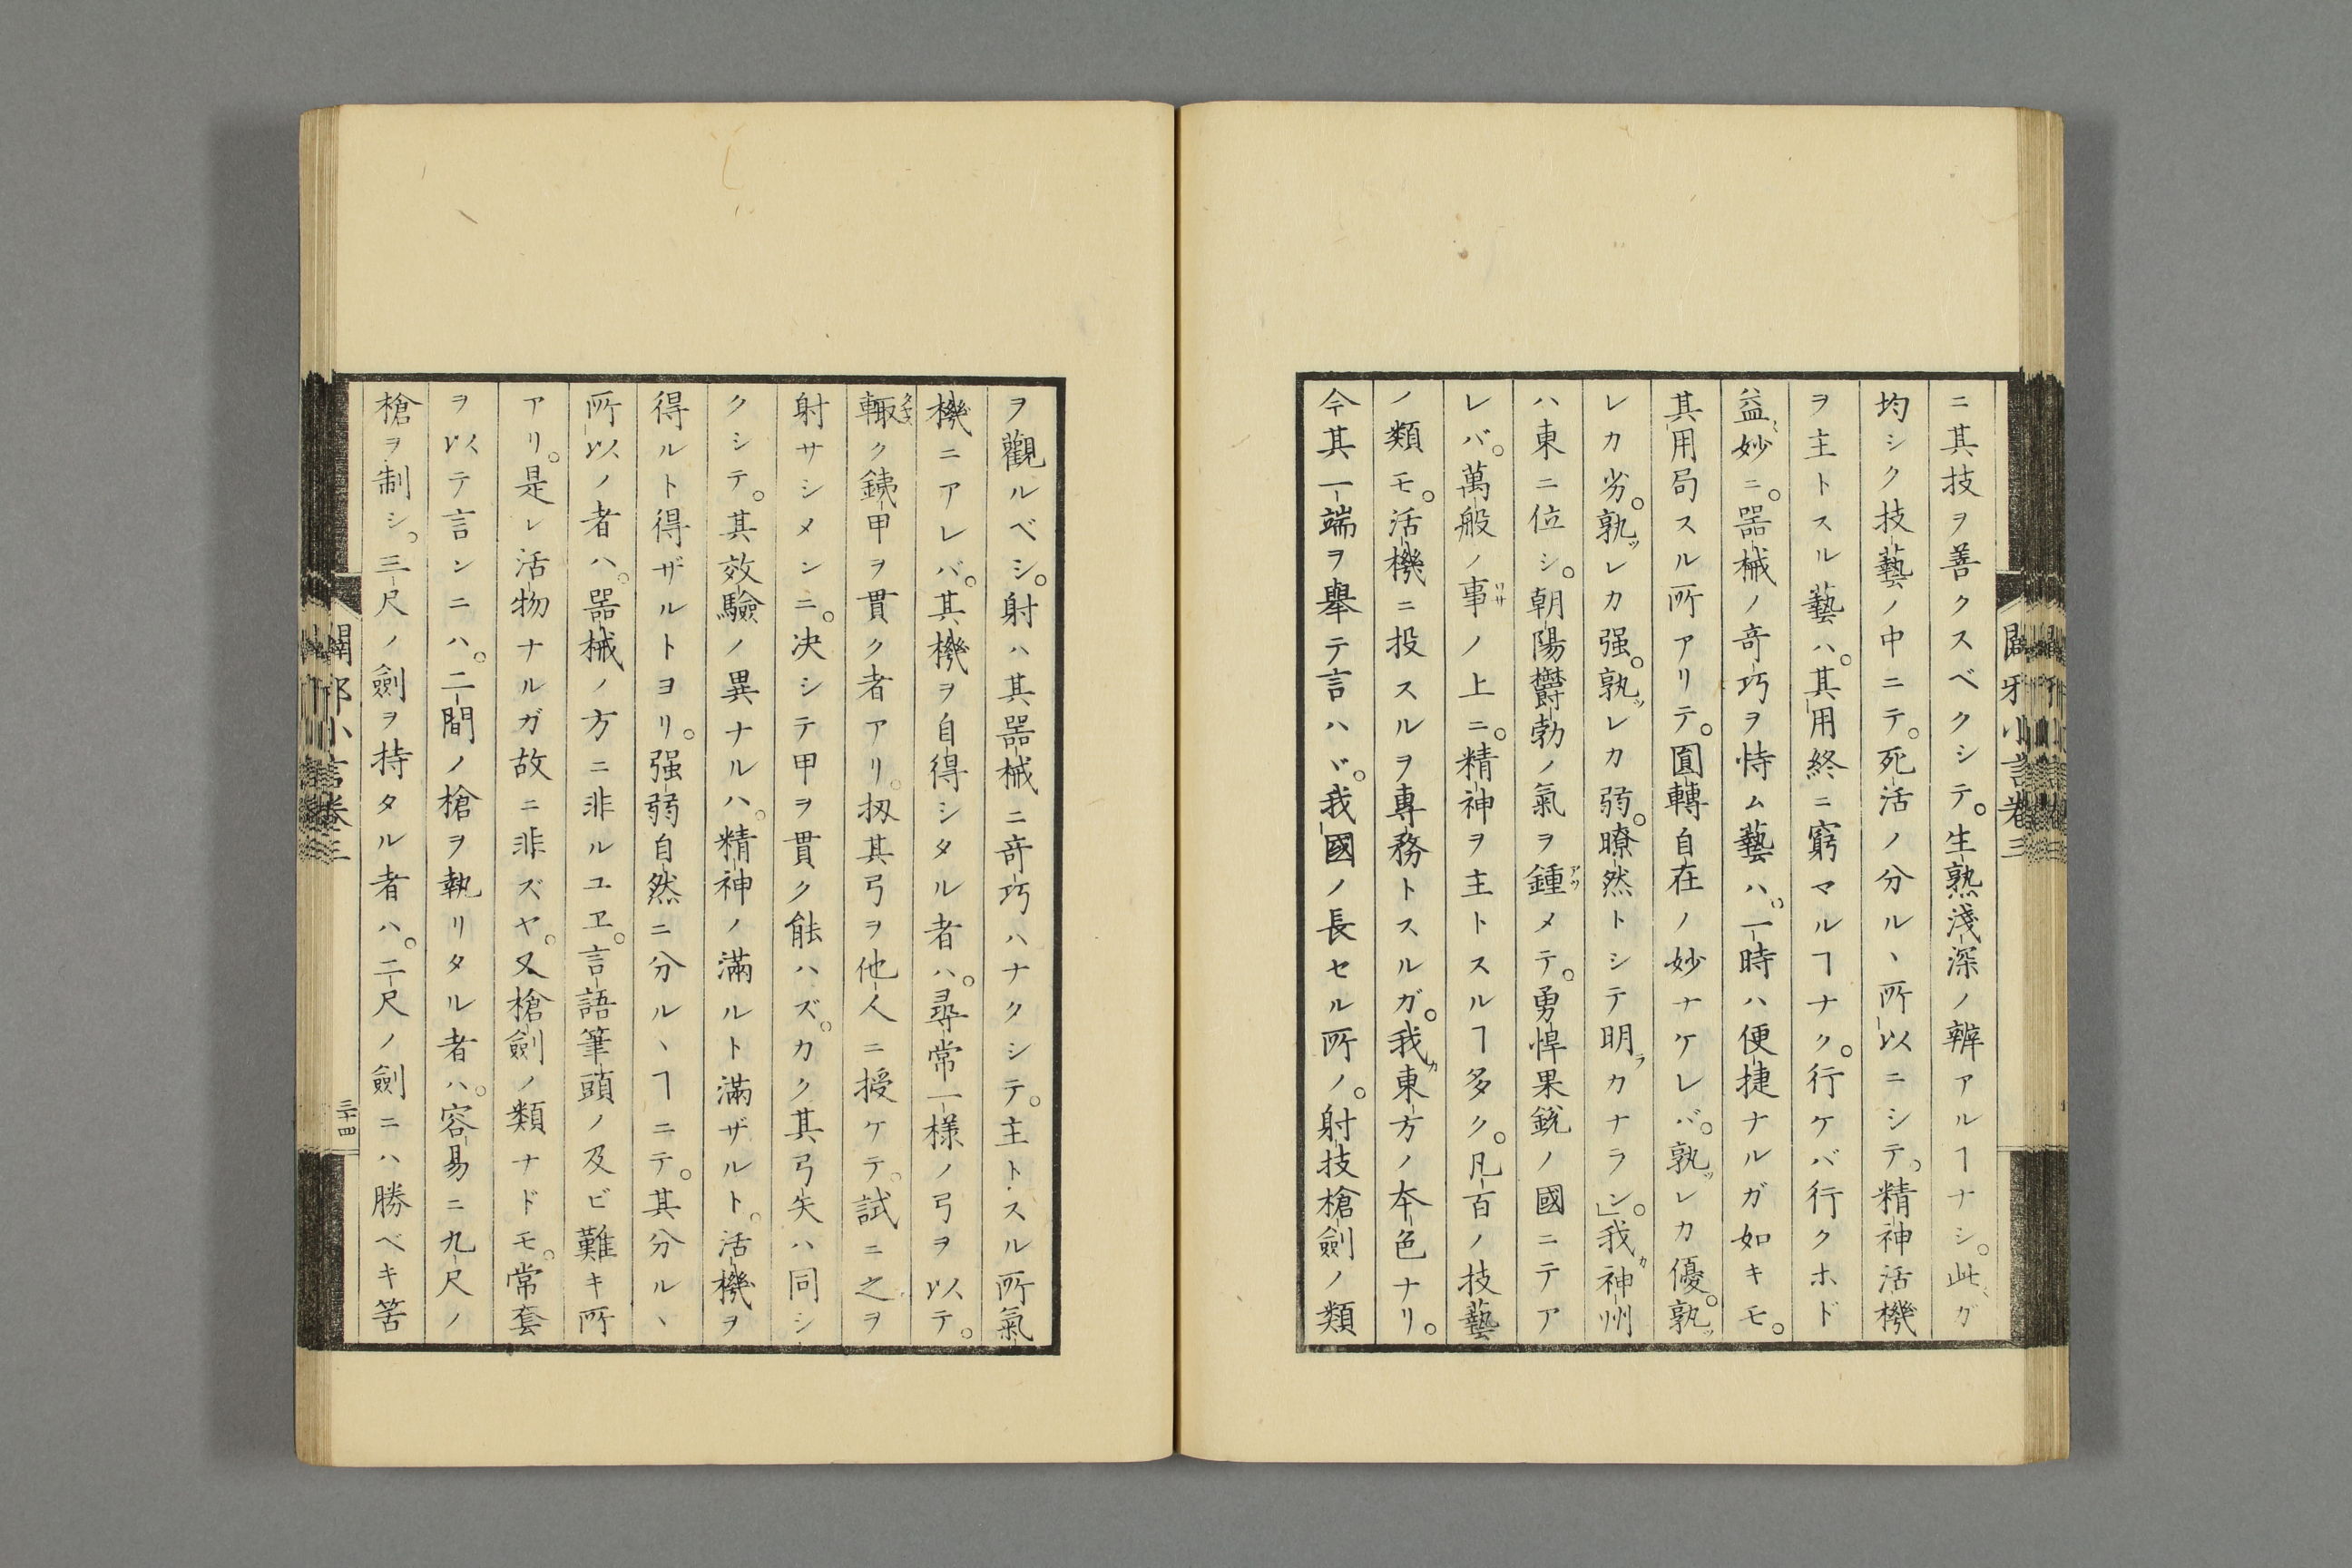 ニ其技ヲ善クスベクシテ。生熟淺深ノ辨アルヿナシ。此ガ
均シク技藝ノ中ニテ。死活ノ分ルヽ所以ニシテ。精神活機
ヲ主トスル藝ハ。其用終ニ窮マルヿナク。行ケバ行クホド
益〻妙ニ。噐械ノ竒巧ヲ恃ム藝ハ。一時ハ便捷ナルガ如キモ。
其用局スル所アリテ。圓轉自在ノ妙ナケレバ。孰ッレカ優。孰ッ
レカ劣。孰ッレカ强。孰ッレカ弱。瞭然トシテ明ラカナラン」。我カ神州
ハ東ニ位シ。朝陽欝勃ノ氣ヲ鍾アツメテ。勇悍果銳ノ國ニテア
レバ。萬般ノ事ワサノ上ニ。精神ヲ主トスルヿ多ク。凡百ノ技藝
ノ類モ。活機ニ投スルヲ專務トスルガ。我カ東方ノ本色ナリ。
今其一端ヲ舉テ言ハヾ。我國ノ長セル所ノ。射技槍劍ノ類
ヲ觀ルベシ。射ハ其噐械ニ竒巧ハナクシテ。主トスル所氣
機ニアレバ。其機ヲ自得シタル者ハ。尋常一樣ノ弓ヲ以テ。
輙ク銕甲ヲ貫ク者アリ。扨其弓ヲ他人ニ授ケテ。試ニ之ヲ
射サシメンニ。决シテ甲ヲ貫ク能ハズ。カク其弓矢ハ同シ
クシテ。其效驗ノ異ナルハ。精神ノ滿ルト滿ザルト。活機ヲ
得ルト得ザルトヨリ。强弱自然ニ分ルヽヿニテ。其分ルヽ
所以ノ者ハ。噐械ノ方ニ非ルユヱ。言語筆頭ノ及ビ難キ所
アリ。是レ活物ナルガ故ニ非ズヤ。又槍劍ノ類ナドモ。常套
ヲ以テ言ンニハ。二間ノ槍ヲ執リタル者ハ。容易ニ九尺ノ
槍ヲ制シ。三尺ノ劍ヲ持タル者ハ。二尺ノ劍ニハ勝ベキ筈
闢邪小言卷三
三十四